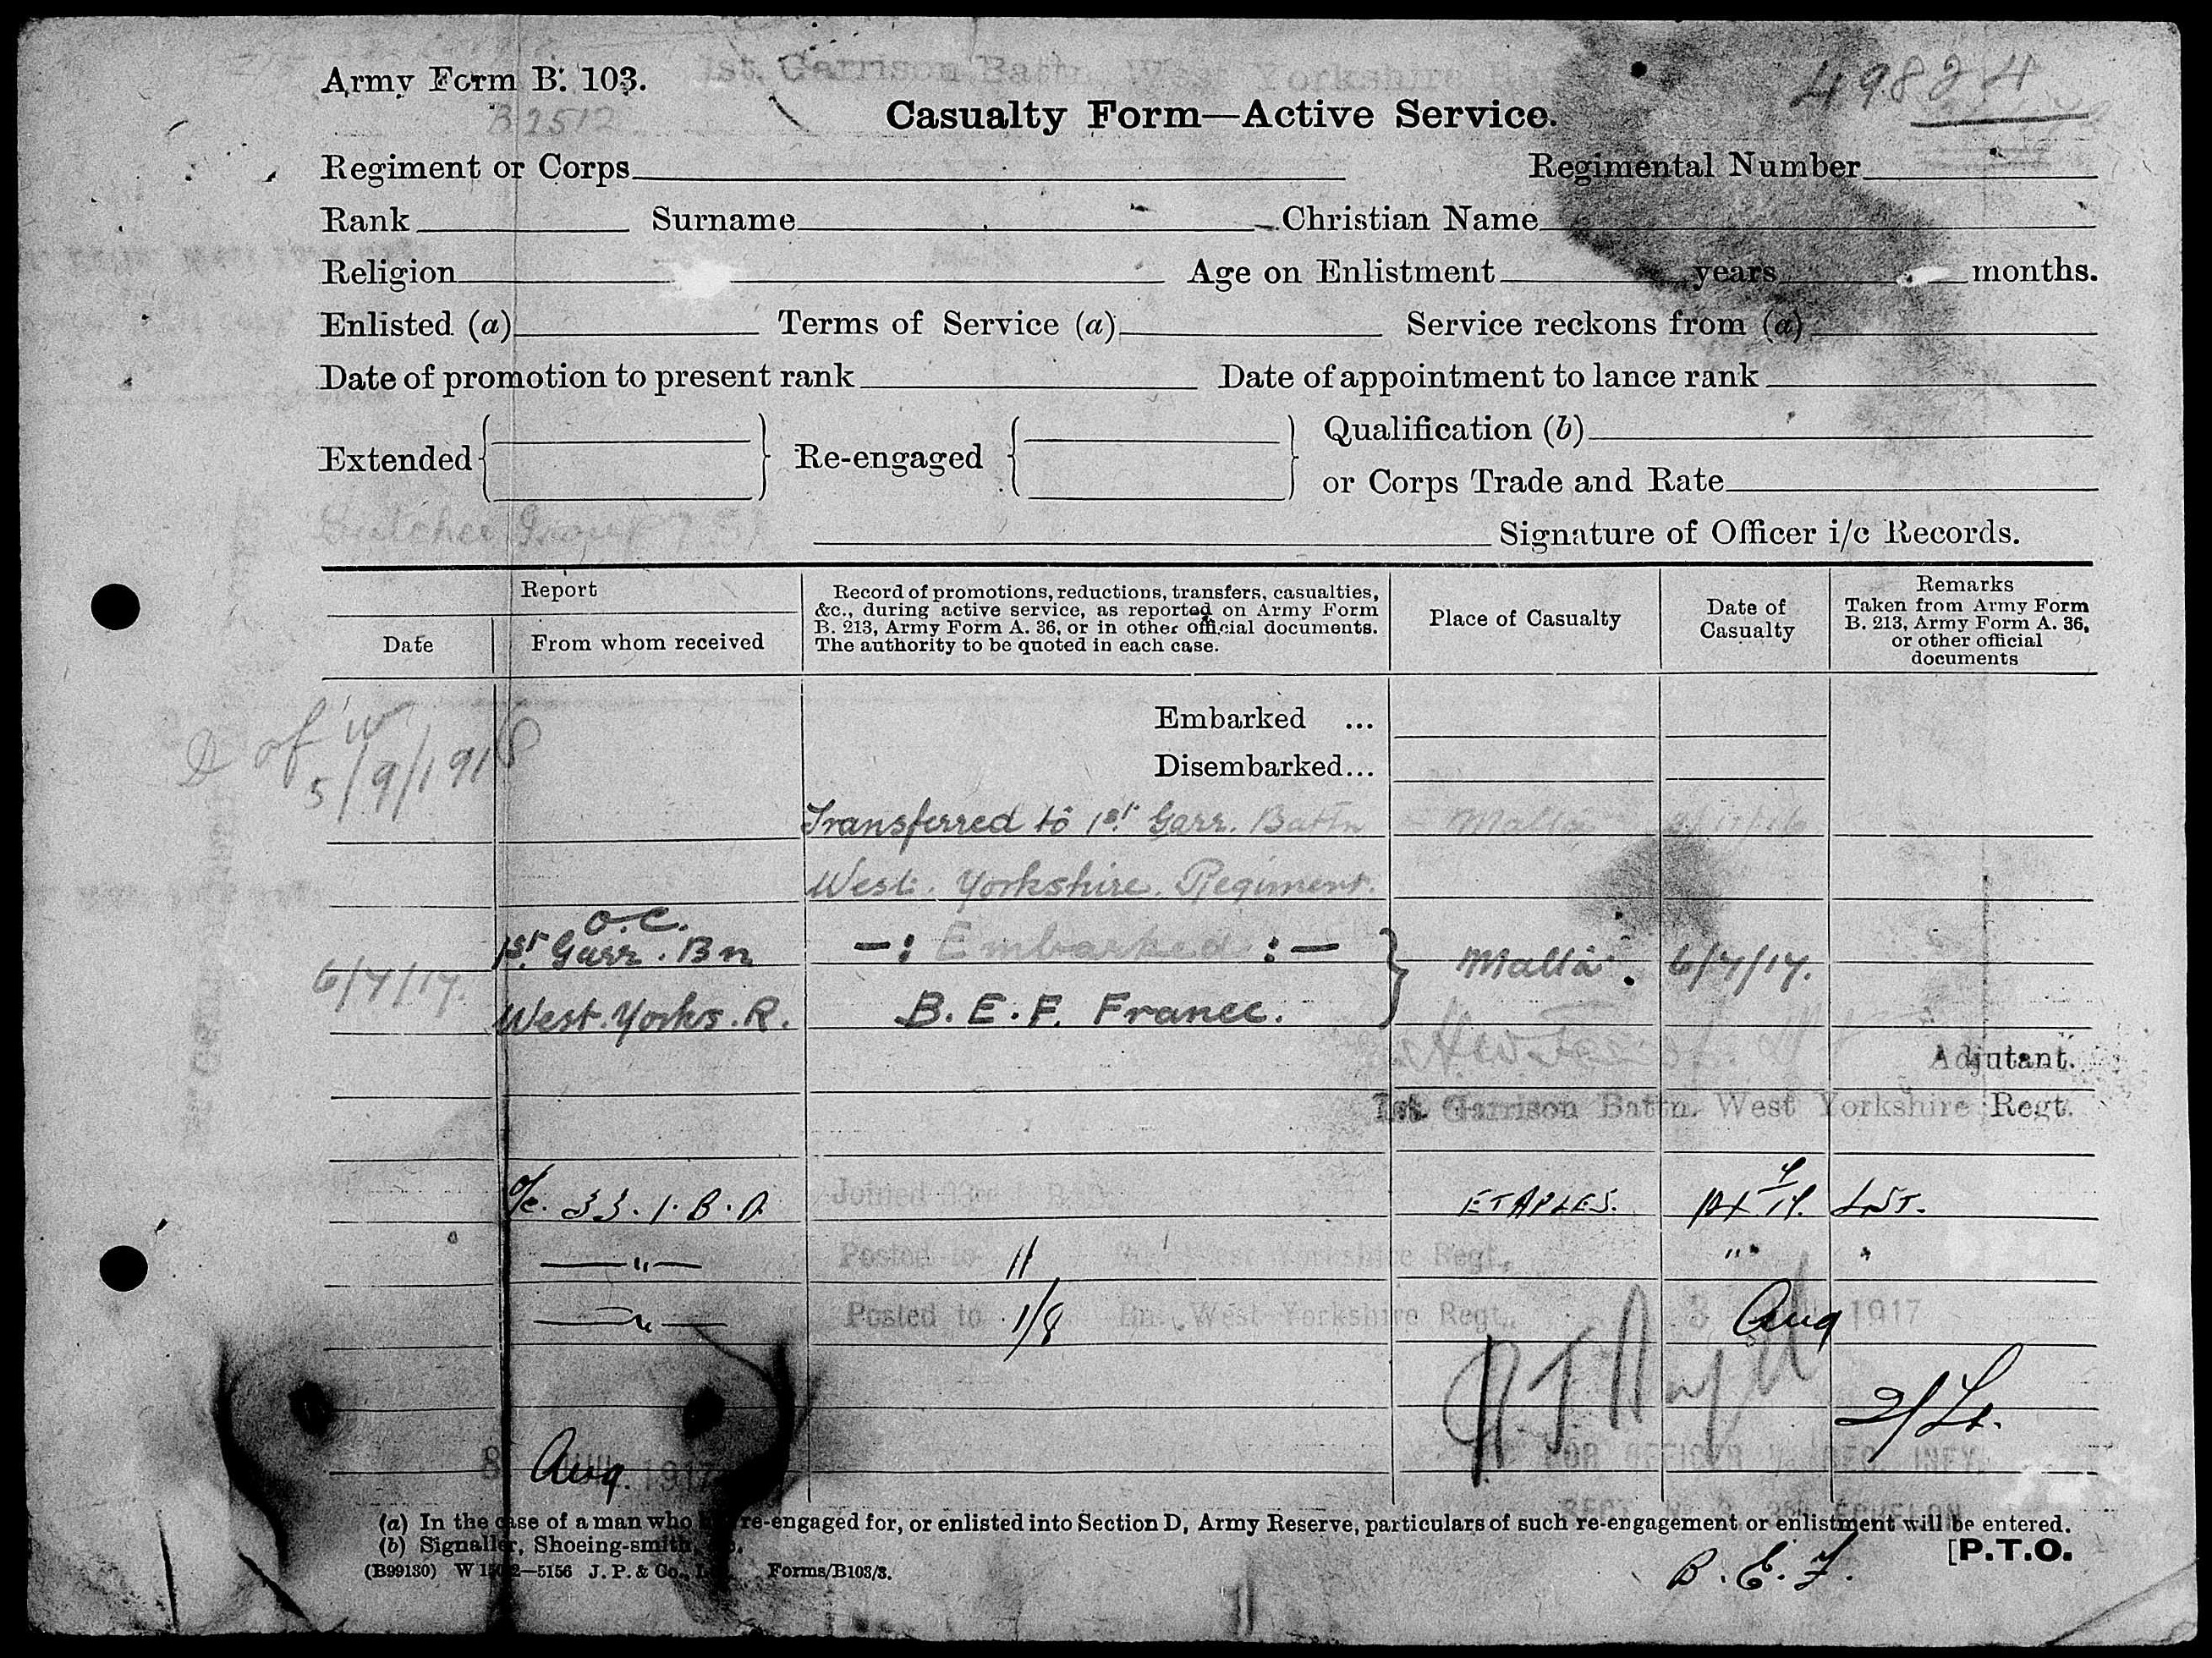 Army Form B. 103.
1st. Garrison Battn. West Yorkshire
49824
B2512
Casualty Form—Active Service.
Regiment or Corps Regimental Number
Rank Surname Christian Name
Religion Age on Enlistment years months.
Enlisted (a) Terms of Service (a) Service reckons from (a)
Date of promotion to present rank Date of appointment to lance rank
Extended Re-engaged Qualification (b)
or Corps Trade and Rate
Signature of Officer i/c Records.
Report
Date
From whom received
Record of promotions, reductions, transfers, casualties,
&c., during active service, as reported on Army Form
B. 213, Army Form A. 36, or in other official documents.
The authority to be quoted in each case.
Place of Casualty
Date of
Casualty
Remarks
Taken from Army Form
B. 213, Army Form A. 36,
or other official
documents
D of W
5/9/1918
Embarked ...
Disembarked...
Transferred to 1st. Garr. Battn Malta
West. Yorkshire. Regiment.
O.C.
1st. Garr. Bn —: Embarked :— Malta. 6/7/17.
6/7/17.
West. Yorks. R. B. E. F. France.
Adjutant.
1st. Garrison Battn. West Yorkshire Regt.
O/c. 33. I. B. D. Joined ETAPLES.
—"— Posted to 11 West Yorkshire Regt., " "
—"— Posted to 1/8 Bn. West Yorkshire Regt., 3 Aug 1917
2/Lt.
8 Aug. 1917
FOR OFFICER I/C REC. INFY.
SECT. 3RD ECHELON
(a) In the case of a man who re-engaged for, or enlisted into Section D, Army Reserve, particulars of such re-engagement or enlistment will be entered.
(b) Signaller, Shoeing-smith,
[P.T.O.
(B99130) W —5156 J. P. & Co., Forms/B103/3.
B. E. F.